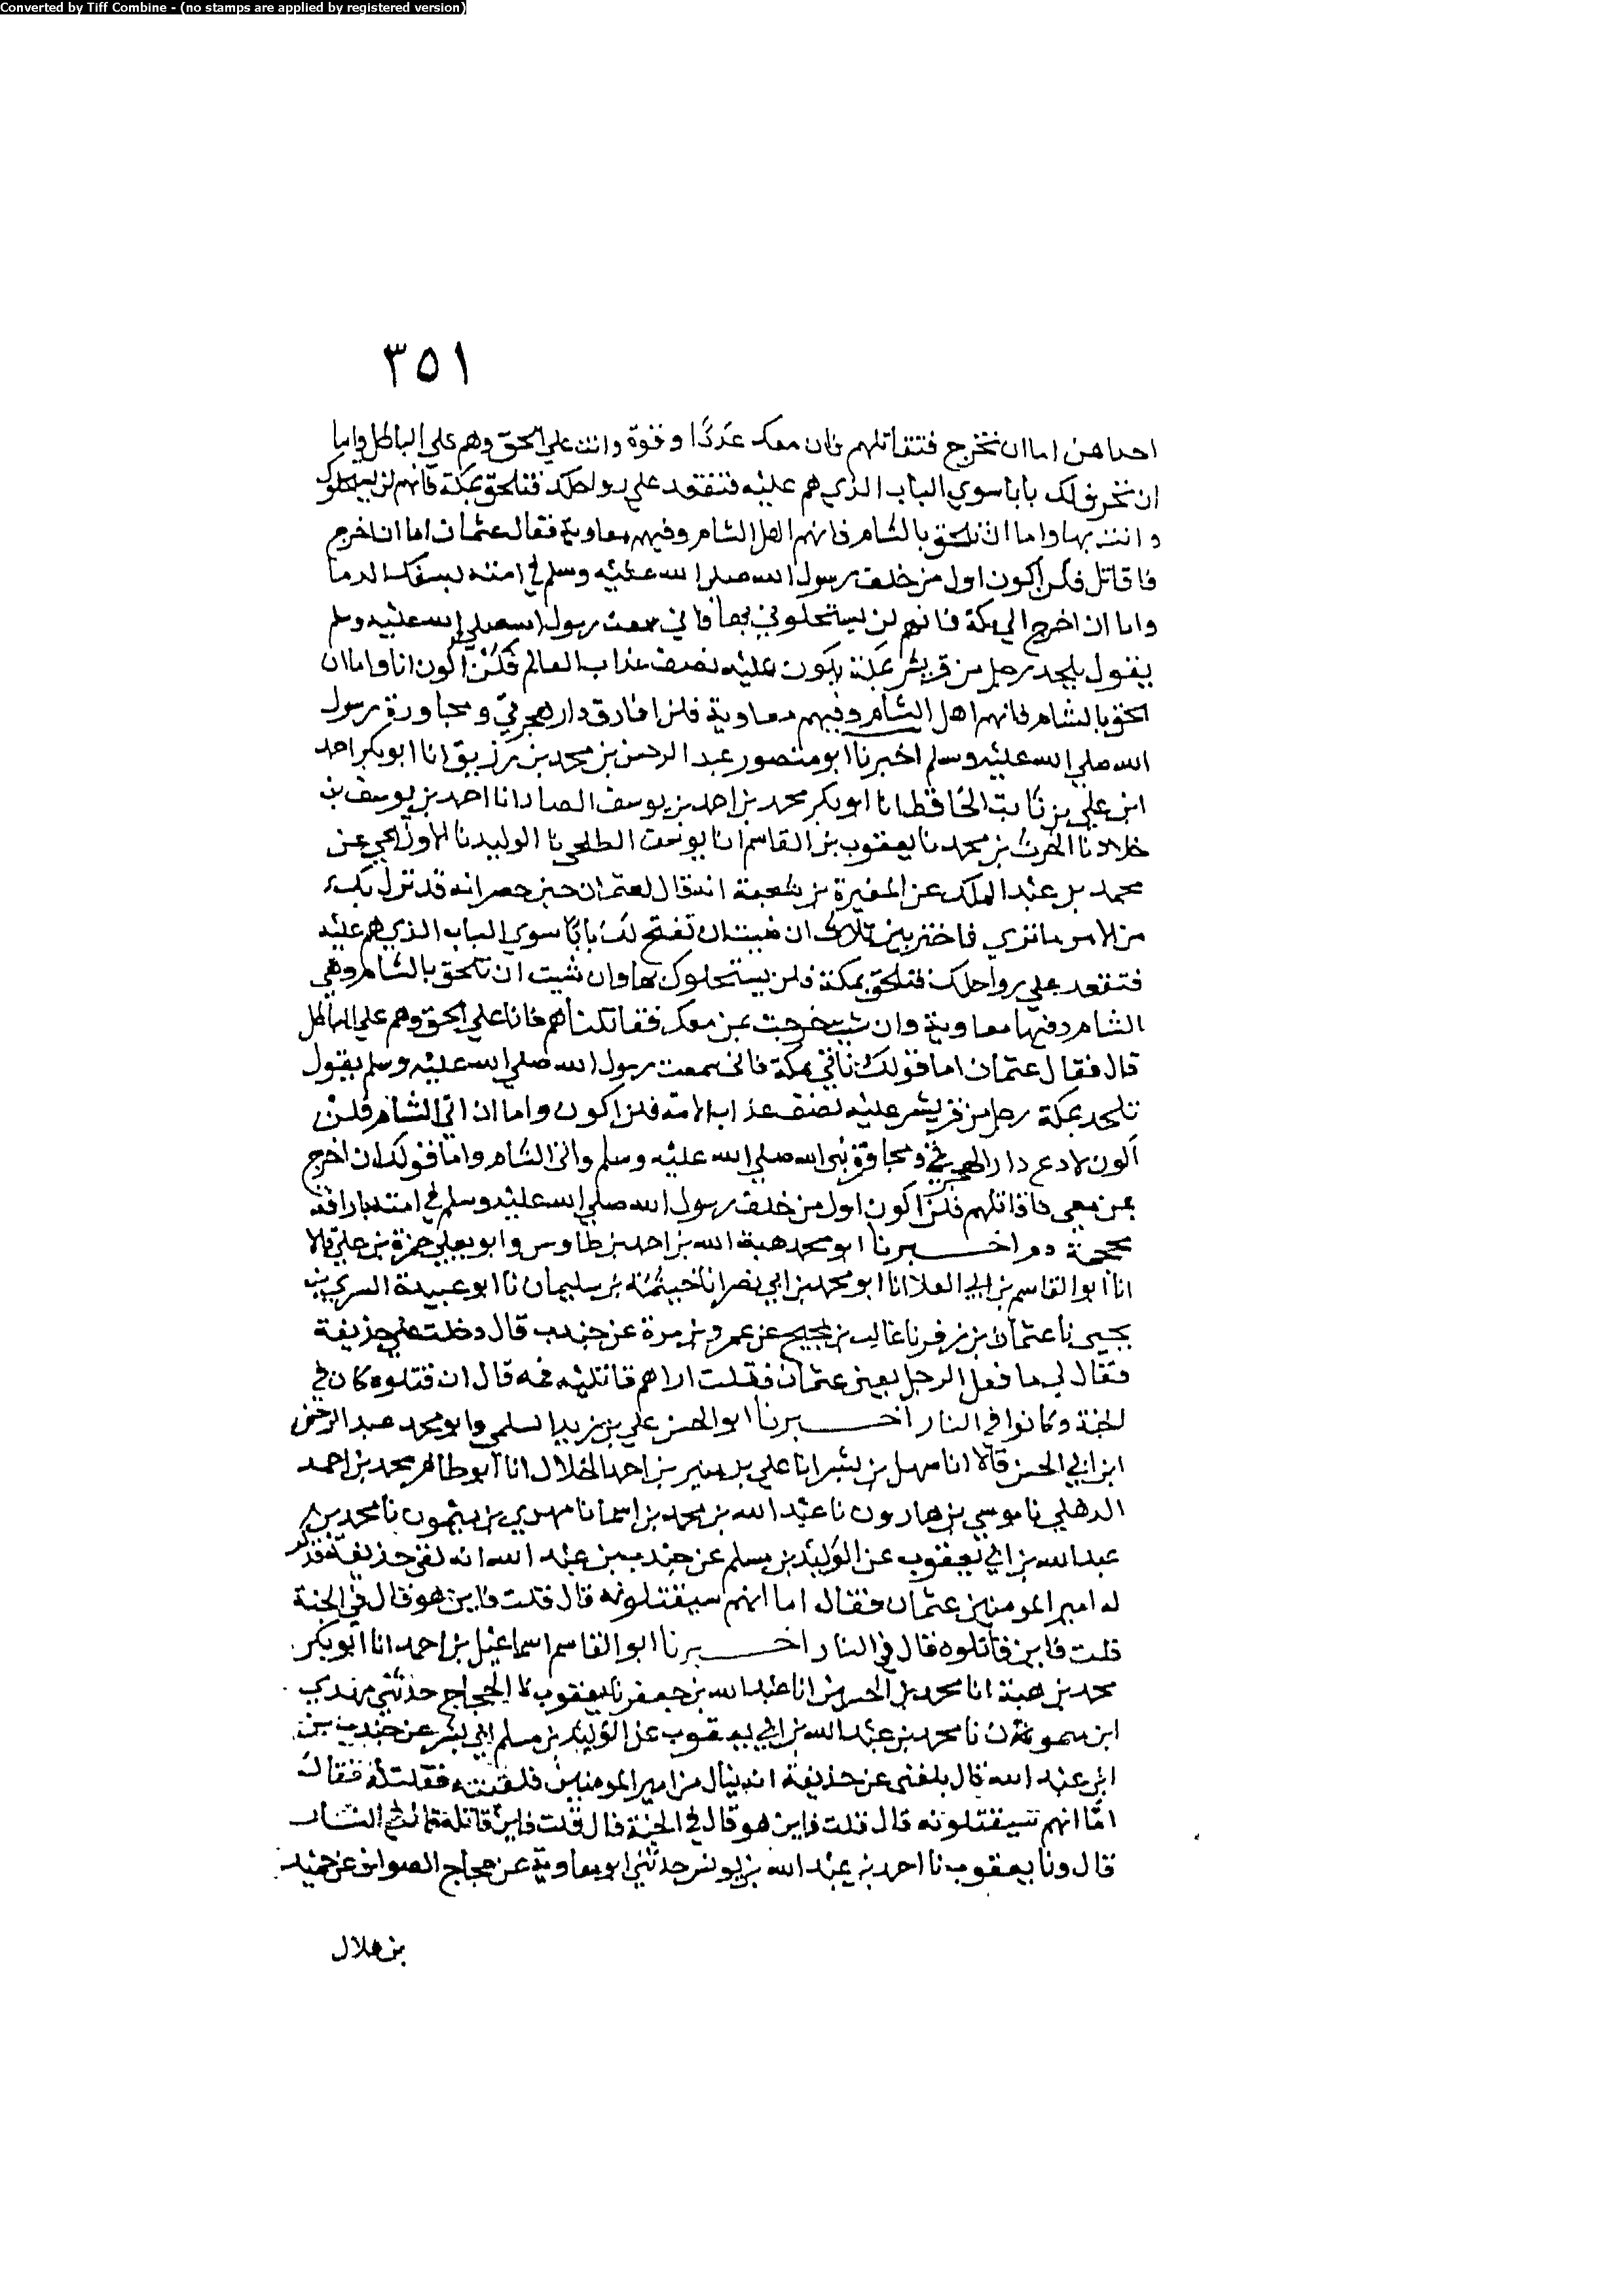 Converted by Tiff Combine - (no stamps are applied by registered version)
٣٥١
احداهن اما ان تخرج فتقاتلهم فان معك عددا وقوة وانت على الحق وهم على الباطل واما
ان نخرق لك بابا سوي الباب الذي هم عليه فتقعد على رواحلك فتلحق بمكة فانهم لن يستحلوك
وانت بها واما ان تلحق بالشام فانهم اهل الشام وفيهم معاوية فقال عثمان اما ان اخرج
فاقاتل فلن اكون اول من خلف رسول الله صلى الله عليه وسلم في امته بسفك الدما
واما ان اخرج الى مكة فانهم لن يستحلوني بها فاني سمعت رسول الله صلى الله عليه وسلم
يقول يلحد رجل من قريش بمكة يكون عليه نصف عذاب العالم فلن اكون انا واما ان
الحق بالشام فانهم اهل الشام وفيهم معاوية فلن افارق دار هجرتي ومجاورة رسول
الله صلى الله عليه وسلم اخبرنا ابو منصور عبد الرحمن بن محمد بن رزيق انا ابو بكر احمد
ابن علي بن ثابت الحافظ انا ابو بكر محمد بن احمد بن يوسف الصاد انا احمد بن يوسف بن
خلاد نا الحرث بن محمد نا يعقوب بن القاسم انا يوسف الطلحي نا الوليد نا الاوزاعي عن
محمد بن عبد الملك عن المغيرة بن شعبة انه قال لعثمان حين حصر انه قد نزل بك
من الامر ما تري فاختر بين ثلاث ان شيت ان نفتح لك بابا سوي الباب الذي هم عليه
فتقعد على رواحلك فتلحق بمكة فلن يستحلوك بها وان شيت ان تلحق بالشام وهي
الشام وفيها معاوية وان شيت خرجت بمن معك فقاتلناهم فانا على الحق وهم على الباطل
قال فقال عثمان اما قولك تاتي مكة فاني سمعت رسول الله صلى الله عليه وسلم يقول
يلحد بمكة رجل من قريش عليه نصف عذاب الامة فلن اكون واما ان اتي الشام فلن
اكون لادع دار الهجرة ومجاورة نبي الله صلى الله عليه وسلم واتي الشام واما قولك ان اخرج
بمن معي فاقاتلهم فلن اكون اول من خلف رسول الله صلى الله عليه وسلم في امته باراقة
محجمة دم اخبرنا ابو محمد هبة الله بن احمد بن طاوس وابو يعلى حمزة بن علي قالا
انا ابو القاسم بن ابي العلا انا ابو محمد بن ابي نصر انا خيثمة بن سليمان نا ابو عبيدة السري بن
يحيى نا عثمان بن زفر نا غالب بن نجيح عن عمرو بن مرة عن جندب قال دخلت على حذيفة
فقال لي ما فعل الرجل يعني عثمان فقلت اراهم قاتليه فمه قال ان قتلوه كان في
الجنة وكانوا في النار اخبرنا ابو الحسن علي بن زيد السلمي وابو محمد عبد الرحمن
ابن ابي الحسن قالا انا سهل بن بشر انا علي بن منير بن احمد الخلال انا ابو طاهر محمد بن احمد
الذهلي نا موسي بن هارون نا عبد الله بن محمد بن اسما نا مهدي بن ميمون نا محمد بن
عبد الله بن ابي يعقوب عن الوليد بن مسلم عن جندب بن عبد الله انه لقي حذيفة فذكر
له امير المومنين عثمان فقال اما انهم سيقتلونه قال قلت فاين هو قال في الجنة
قلت فاين قاتلوه قال في النار اخبرنا ابو القاسم اسماعيل بن احمد انا ابو بكر
محمد بن هبة انا محمد بن الحسين انا عبد الله بن جعفر نا يعقوب نا الحجاج حدثني مهدي
ابن ميمون نا محمد بن عبد الله بن ابي يعقوب عن الوليد بن مسلم ابي بشر عن جندب بن
ابن عبد الله قال بلغني عن حذيفة انه ينال من امير المومنين فلقيته فقلت له فقال
اما انهم سيقتلونه قال قلت فاين هو قال في الجنة قال قلت فاين قاتله قال في النار
قال ونا يعقوب نا احمد بن عبد الله بن يونس حدثني ابو معاوية عن حجاج الصواف عن حميد
بن هلال